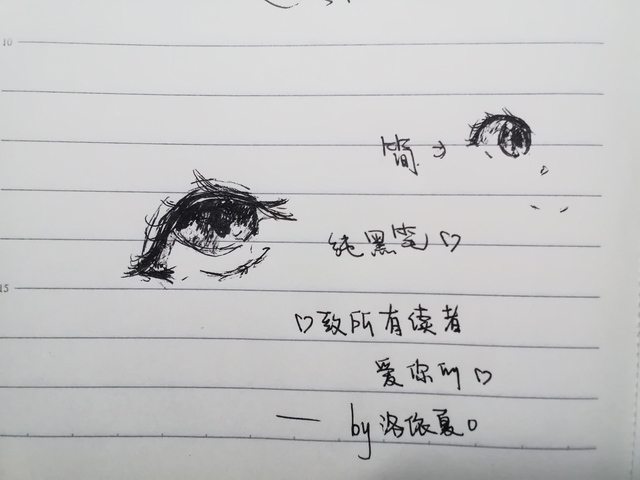 10
简→
纯黑笔♡
15
♡致所有读者
爱你们♡
—by洛依夏。